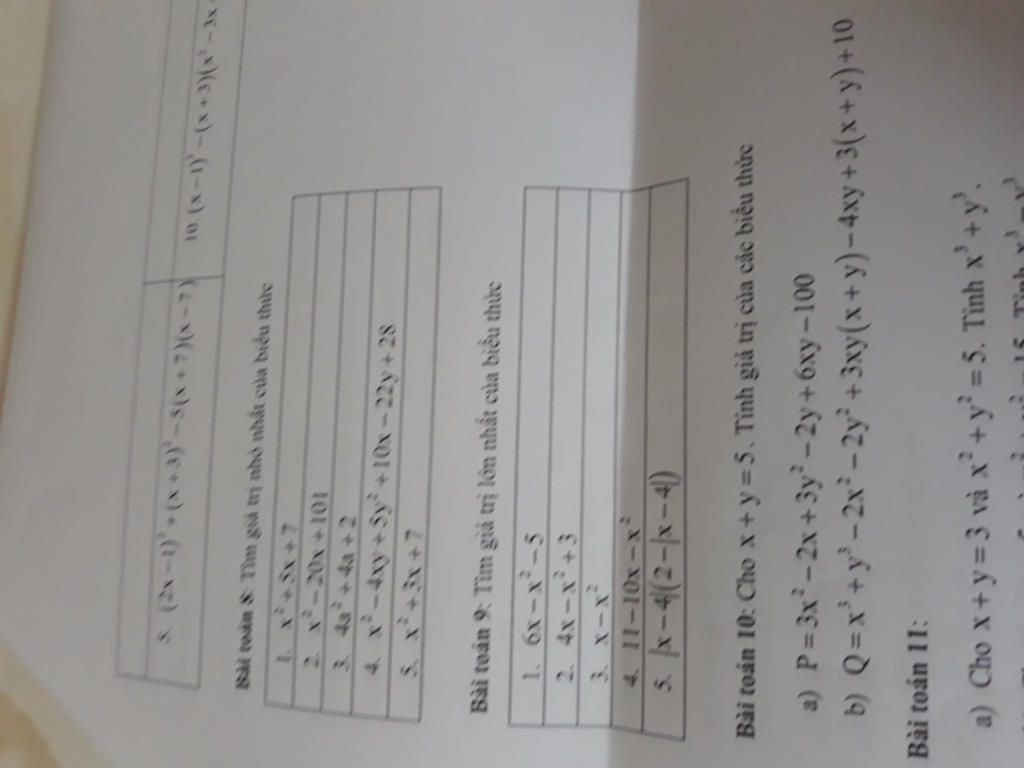 8. (2x−1)² + (x+3)² − 5(x+7)(x−7)
10. (x−1)³ − (x+3)(x² − 3x
Bài toán 8: Tìm giá trị nhỏ nhất của biểu thức
1. x² + 5x + 7
2. x² − 20x + 101
3. 4a² + 4a + 2
4. x² − 4xy + 5y² + 10x − 22y + 28
5. x² + 3x + 7
Bài toán 9: Tìm giá trị lớn nhất của biểu thức
1. 6x − x² − 5
2. 4x − x² + 3
3. x − x²
4. 11 − 10x − x²
5. |x − 4|(2 − |x − 4|)
Bài toán 10: Cho x + y = 5. Tính giá trị của các biểu thức
a) P = 3x² − 2x + 3y² − 2y + 6xy − 100
b) Q = x³ + y³ − 2x² − 2y² + 3xy(x + y) − 4xy + 3(x + y) + 10
Bài toán 11:
a) Cho x + y = 3 và x² + y² = 5. Tính x³ + y³.